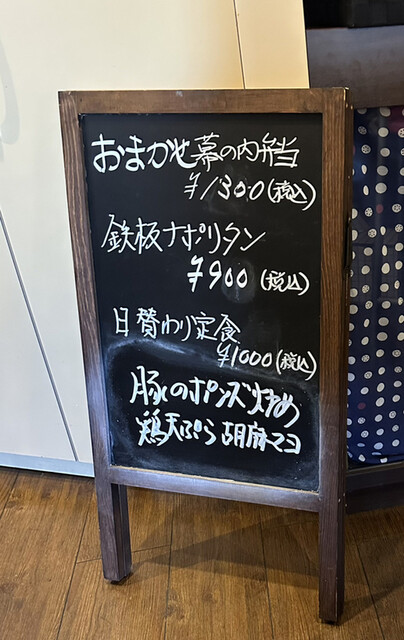 おまかせ幕の内弁当
¥1300(税込)
鉄板ナポリタン
¥900(税込)
日替わり定食
¥1000(税込)
豚のポンズ炒め
鶏天ぷら胡麻マヨ